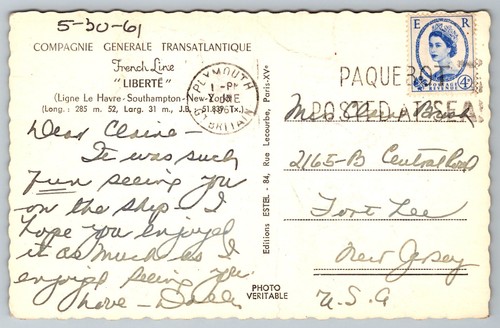 5-30-61
COMPAGNIE GENERALE TRANSATLANTIQUE
French Line
"LIBERTÉ"
(Ligne Le Havre-Southampton-New-York)
(Long.: 285 m. 52, Larg. 31 m., J.B. 51.839 Tx.)
PLYMOUTH
1-PM
2 JNE
1961
GT. BRITAIN
E R
POSTAGE REVENUE
4D
PAQUEBOT
POSTED AT SEA
Dear Claire —
It was such
fun seeing you
on the ship — I
hope you enjoyed
it as much as I
enjoyed seeing you.
Love —
Editions ESTEL - 84, Rue Lecourbe, Paris-XVe
PHOTO
VERITABLE
Claire
2165-B Central Road
Fort Lee
New Jersey
U.S.A